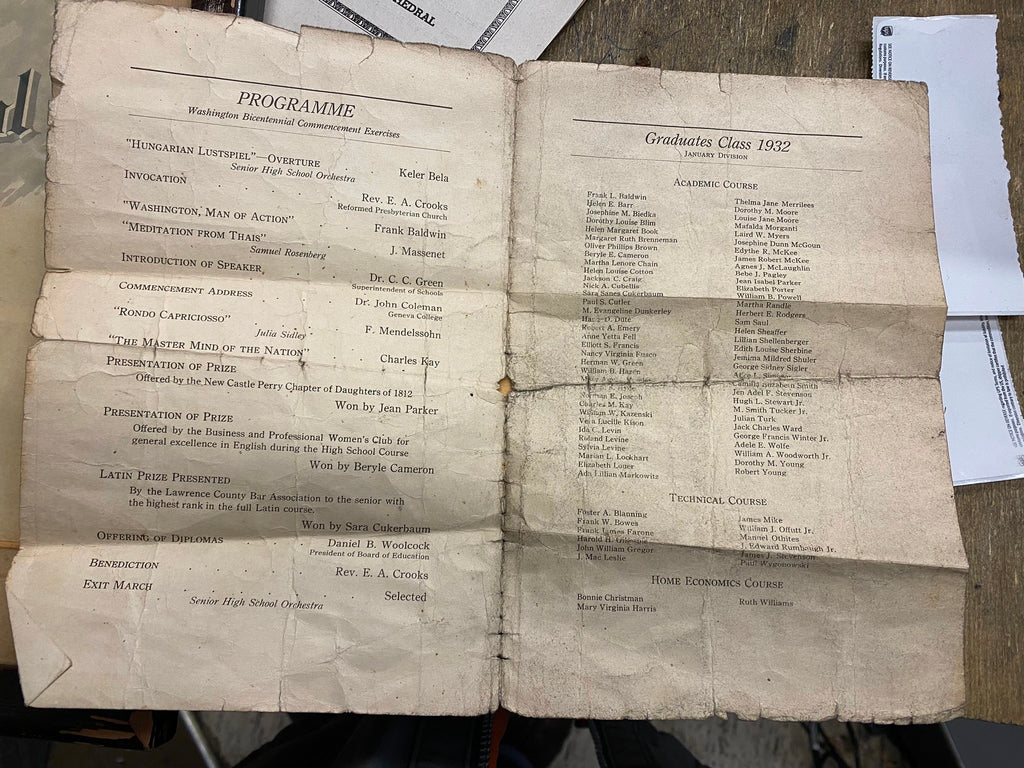 HEDRAL
PROGRAMME
Washington Bicentennial Commencement Exercises
"HUNGARIAN LUSTSPIEL"—OVERTURE Keler Bela
Senior High School Orchestra
INVOCATION Rev. E. A. Crooks
Reformed Presbyterian Church
"WASHINGTON, MAN OF ACTION" Frank Baldwin
"MEDITATION FROM THAIS" J. Massenet
Samuel Rosenberg
INTRODUCTION OF SPEAKER, Dr. C. C. Green
Superintendent of Schools
COMMENCEMENT ADDRESS Dr. John Coleman
Geneva College
"RONDO CAPRICIOSO" F. Mendelssohn
Julia Sidley
"THE MASTER MIND OF THE NATION" Charles Kay
PRESENTATION OF PRIZE
Offered by the New Castle Perry Chapter of Daughters of 1812
Won by Jean Parker
PRESENTATION OF PRIZE
Offered by the Business and Professional Women's Club for
general excellence in English during the High School Course
Won by Beryle Cameron
LATIN PRIZE PRESENTED
By the Lawrence County Bar Association to the senior with
the highest rank in the full Latin course.
Won by Sara Cukerbaum
OFFERING OF DIPLOMAS Daniel B. Woolcock
President of Board of Education
BENEDICTION Rev. E. A. Crooks
EXIT MARCH Selected
Senior High School Orchestra
Graduates Class 1932
JANUARY DIVISION
ACADEMIC COURSE
Frank L. Baldwin
Helen E. Barr
Josephine M. Biedka
Dorothy Louise Blim
Helen Margaret Book
Margaret Ruth Brenneman
Oliver Phillips Brown
Beryle E. Cameron
Martha Lenore Chain
Helen Louise Cotton
Jackson C. Craig
Nick A. Cubellis
Sara Sanes Cukerbaum
Paul S. Cutler
M. Evangeline Dunkerley
D. Dute
Robert A. Emery
Anne Yetta Fell
Elliott S. Francis
Nancy Virginia Fusco
Herman W. Green
William B. Hazen
Norman E. Joseph
Charles M. Kay
William W. Kazenski
Vera Lucille Kison
Ida C. Levin
Roland Levine
Sylvia Levine
Marian L. Lockhart
Elizabeth Louer
Ada Lillian Markowitz
Thelma Jane Merrilees
Dorothy M. Moore
Louise Jane Moore
Mafalda Morganti
Laird W. Myers
Josephine Dunn McGoun
Edythe R. McKee
James Robert McKee
Agnes J. McLaughlin
Bebe J. Pagley
Jean Isabel Parker
Elizabeth Porter
William B. Powell
Martha Randle
Herbert E. Rodgers
Sam Saul
Helen Sheaffer
Lillian Shellenberger
Edith Louise Sherbine
Jemima Mildred Shuler
George Sidney Sigler
Camilla Elizabeth Smith
Jen Adel F. Stevenson
Hugh L. Stewart Jr.
M. Smith Tucker Jr.
Julian Turk
Jack Charles Ward
George Francis Winter Jr.
Adele E. Wolfe
William A. Woodworth Jr.
Dorothy M. Young
Robert Young
TECHNICAL COURSE
Foster A. Blanning
Frank W. Bowes
Frank James Farone
Harold H. Gillespie
John William Gregor
J. Mac Leslie
James Mike
William J. Offutt Jr.
Manuel Othites
J. Edward Rumbaugh Jr.
James J. Stevenson
Paul Wygonowski
HOME ECONOMICS COURSE
Bonnie Christman
Mary Virginia Harris
Ruth Williams